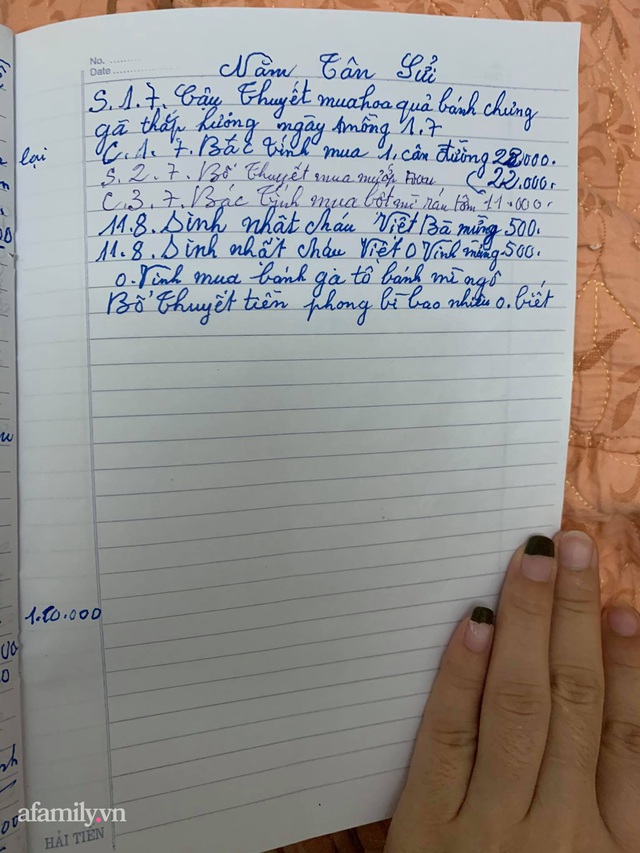 No. ........
Date ..............
Năm Tân Sửu
S.1.7. Cậu Thuyết mua hoa quả bánh chưng
gà thắp hương ngày mồng 1.7
lại
C.1.7. Bác Tính mua 1 cân đường 28.000.
S.2.7. Bố Thuyết mua mướp rau 22.000.
C.3.7. Bác Tính mua bột mì rán tôm 11.000.
11.8. Sinh nhật cháu Việt Bà mừng 500.
11.8. Sinh nhật cháu Việt O Vinh mừng 500.
O. Vinh mua bánh ga tô bánh mì ngô
Bố Thuyết tiền phong bì bao nhiêu o. biết
1.20.000
afamily.vn
HẢI TIẾN